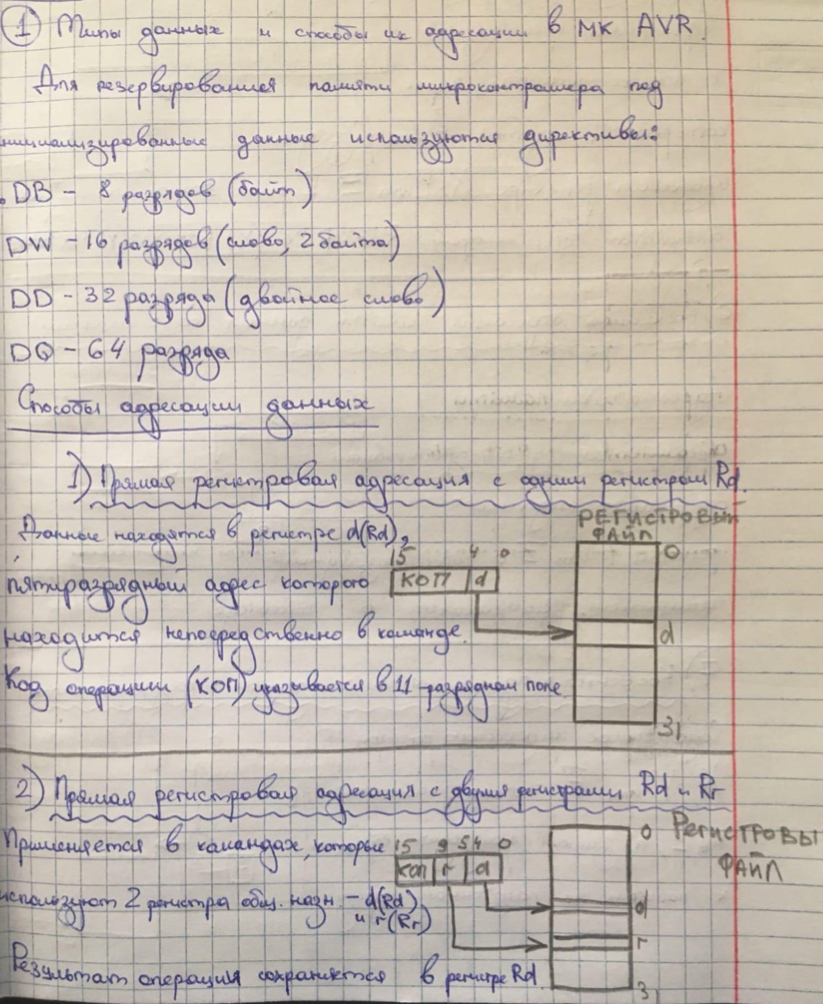 1 Типы данных и способы их адресации в МК AVR.
Для резервирования памяти микроконтроллера под
инициализированные данные используются директивы:
.DB – 8 разрядов (байт)
DW – 16 разрядов (слово, 2 байта)
DD – 32 разряда (двойное слово)
DQ – 64 разряда
Способы адресации данных
1) Прямая регистровая адресация с одним регистром Rd.
Данные находятся в регистре d(Rd),
РЕГИСТРОВЫЙ
ФАЙЛ
15 4 0
0
пятиразрядный адрес которого
КОП d
находится непосредственно в команде.
d
Код операции (КОП) указывается в 11-разрядном поле
31
2) Прямая регистровая адресация с двумя регистрами Rd и Rr
Применяется в командах, которые
15 9 5 4 0
0
РЕГИСТРОВЫ
ФАЙЛ
КОП r d
используют 2 регистра общ. назн. – d(Rd)
и r(Rr)
d
r
Результат операции сохраняется в регистре Rd.
31